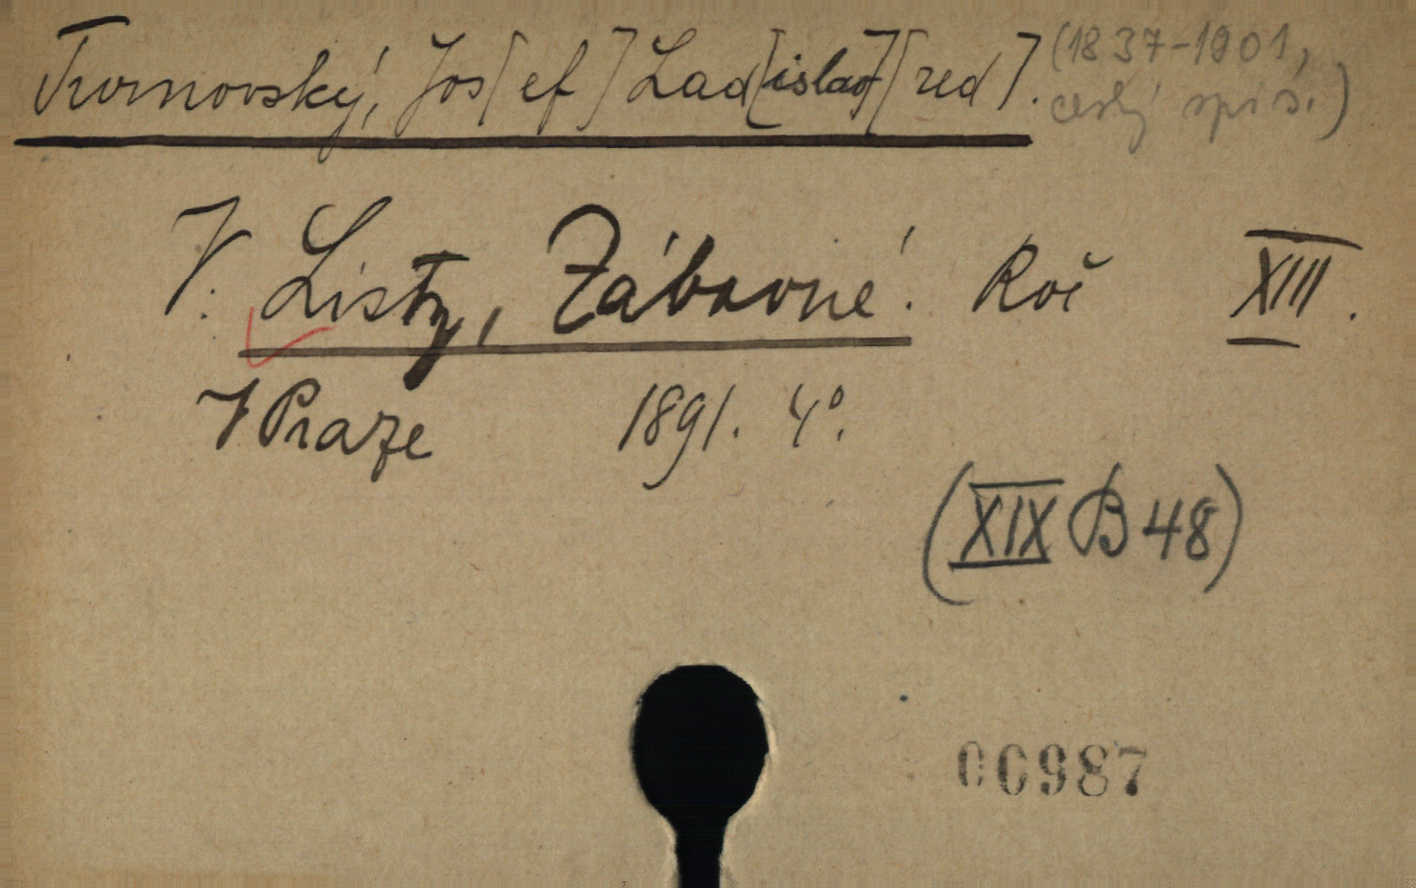 Turnovský, Jos[ef] Lad[islav][red]. (1837-1901,
český spis.)
V: Listy, Zábavné. Roč XIII.
V Praze 1891. 4°.
(XIX B 48)
00987